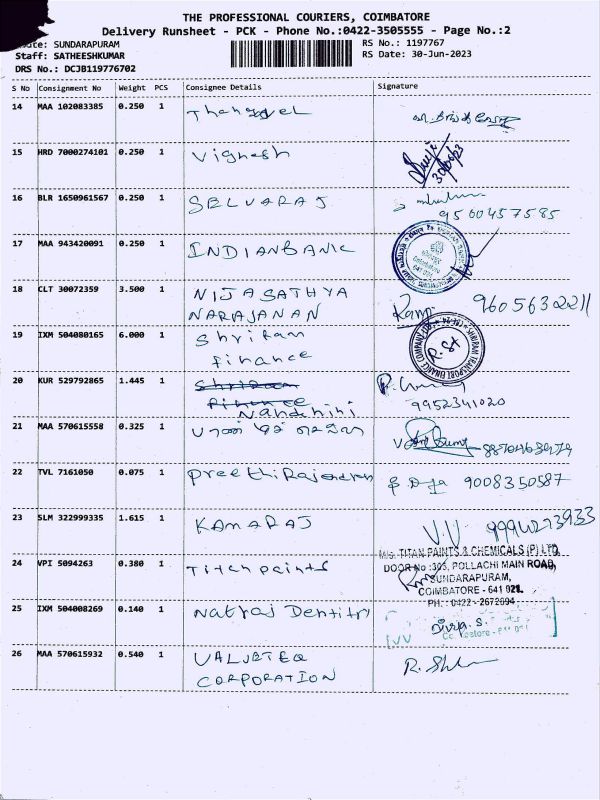 THE PROFESSIONAL COURIERS, COIMBATORE
Delivery Runsheet - PCK - Phone No.:0422-3505555 - Page No.:2
SUNDARAPURAM
RS No.: 1197767
Staff: SATHEESHKUMAR
RS Date: 30-Jun-2023
DRS No.: DCJB119776702
S No Consignment No Weight PCS Consignee Details Signature
14 MAA 102083385 0.250 1 Thangavel
15 HRD 7000274101 0.250 1 Vignesh
30/06/23
16 BLR 1650961567 0.250 1 SELVARAJ
9560457585
17 MAA 943420091 0.250 1 INDIANBANK
18 CLT 30072359 3.500 1 NIJASATHYA 9605632211
NARAJANAN
19 IXM 504080165 6.000 1 Shriram
finance
SHRIRAM TRANSPORT FINANCE COMPANY
20 KUR 529792865 1.445 1 Shriram
finance
Nandhini
9952341020
21 MAA 570615558 0.325 1
22 TVL 7161050 0.075 1 PreethiRajendran 9008350587
23 SLM 322999335 1.615 1 KAMARAJ V.V 9994273933
24 VPI 5094263 0.380 1 Titan paints
M/s. TITAN PAINTS & CHEMICALS (P) LTD,
DOOR No :303, POLLACHI MAIN ROAD,
SUNDARAPURAM,
COIMBATORE - 641 021.
PH.: 0422 - 2672694
25 IXM 504008269 0.140 1 Natraj Dentitry Divya. S.
26 MAA 570615932 0.540 1 VALUETEQ
CORPORATION